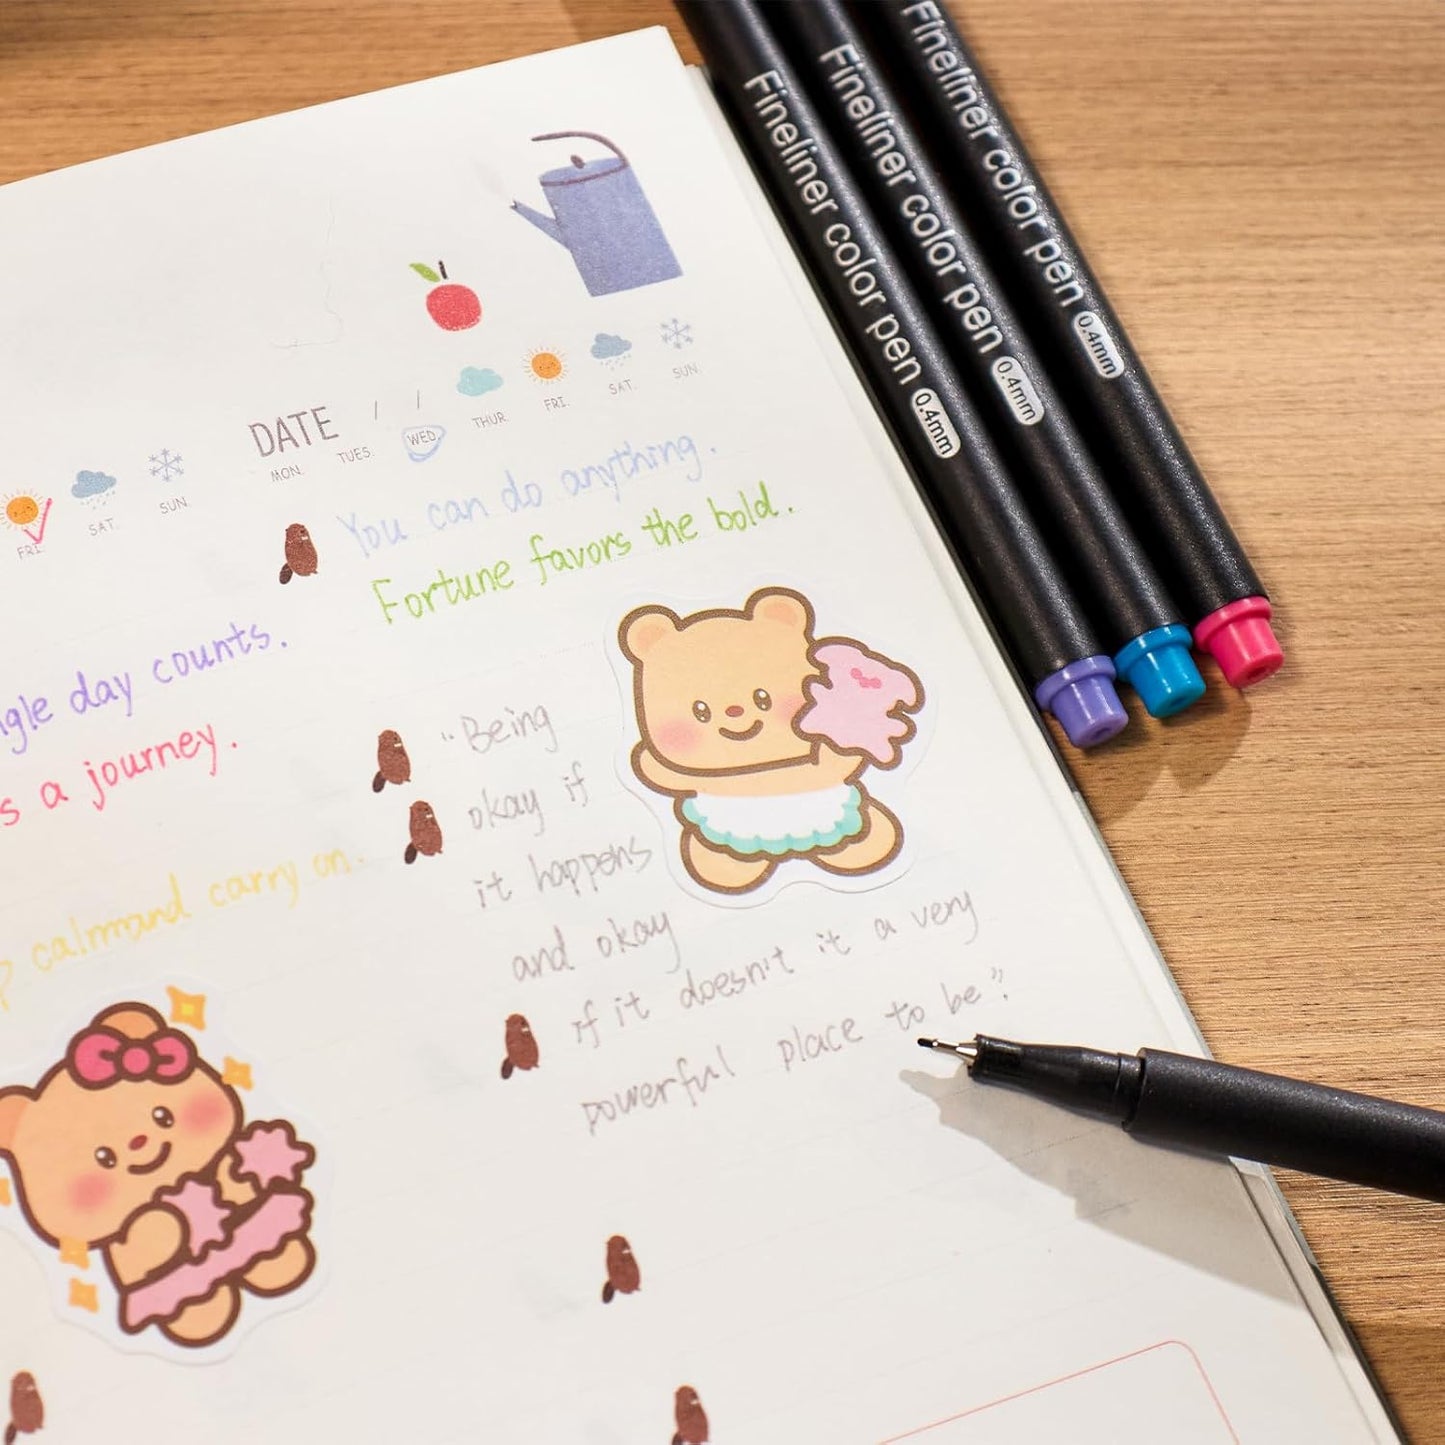 Fineliner color pen 0.4mm
Fineliner color pen 0.4mm
Fineliner color pen 0.4mm
FRI. SAT. SUN.
day counts.
a journey.
carry on.
DATE / /
MON. TUES. WED. THUR. FRI. SAT. SUN.
You can do anything.
Fortune favors the bold.
"Being
okay if
it happens
and okay
if it doesn't it a very
powerful place to be".